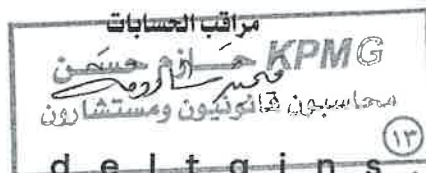 مراقب الحسابات
KPMG حازم حسن
محاسبون قانونيون ومستشارون
١٣
deltains